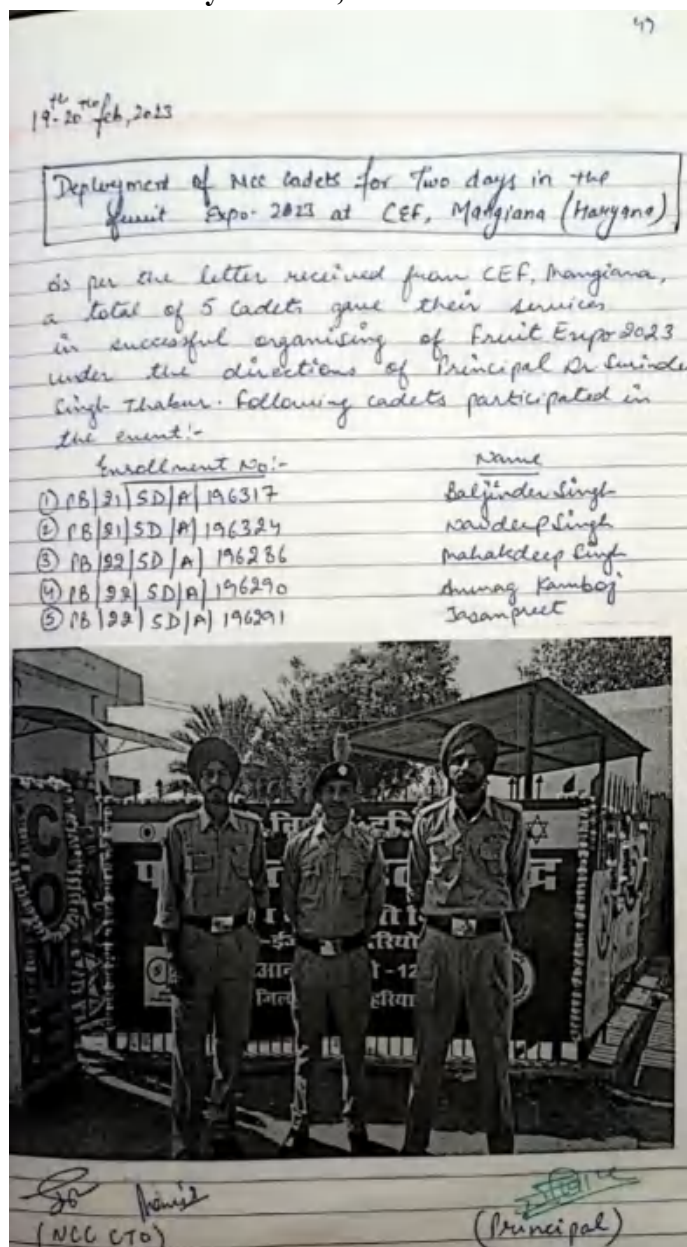 49
19th-20th Feb, 2023
Deployment of NCC Cadets for Two days in the
Fruit Expo-2023 at CEF, Mangiana (Haryana)
As per the letter received from CEF, Mangiana,
a total of 5 Cadets gave their services
in successful organising of Fruit Expo 2023
under the directions of Principal Dr Surinder
Singh Thakur. Following cadets participated in
the event:-
Enrollment No:- Name
① PB|21|SD|A|196317 Baljinder Singh
② PB|21|SD|A|196324 Navdeep Singh
③ PB|22|SD|A|196286 Mahakdeep Singh
④ PB|22|SD|A|196290 Anurag Kamboj
⑤ PB|22|SD|A|196291 Jasanpreet
COME
(NCC CTO) (Principal)